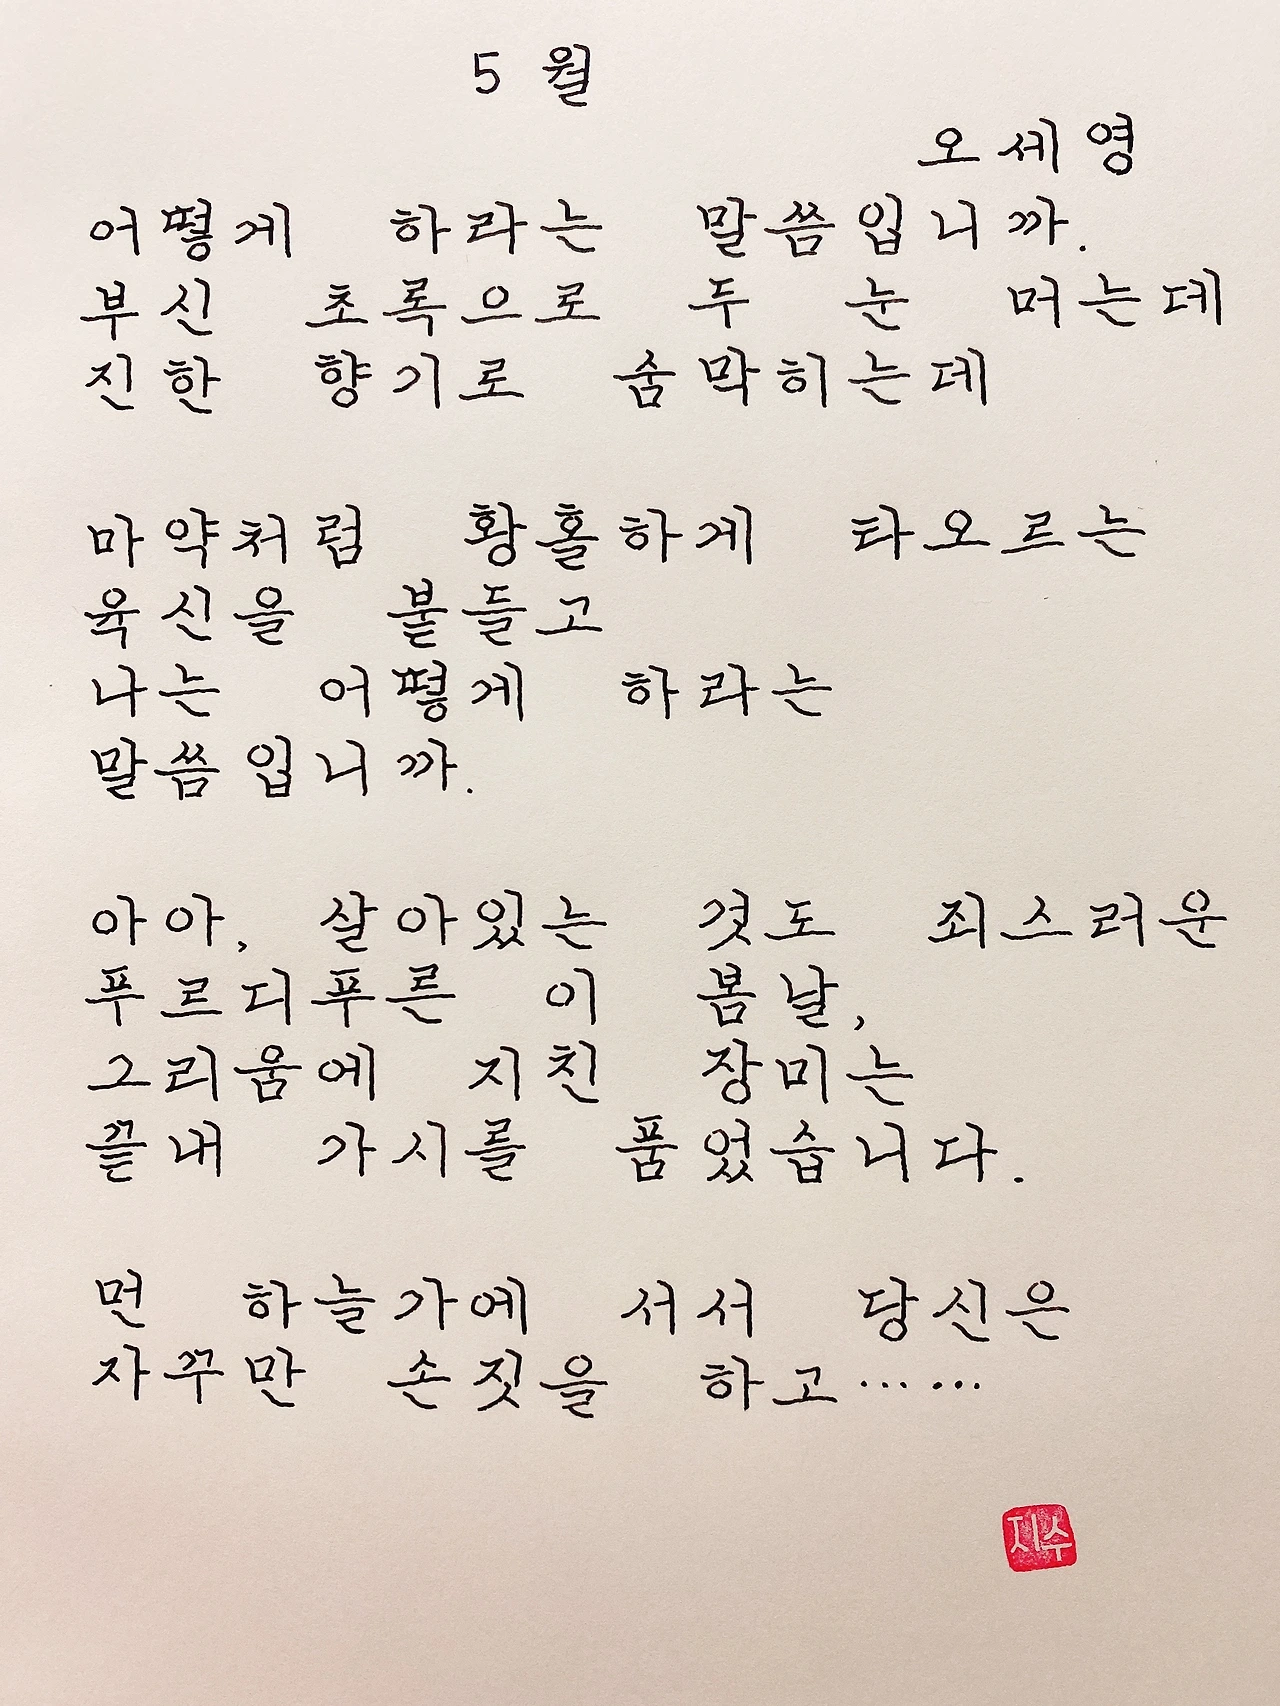 5월
오세영
어떻게 하라는 말씀입니까.
부신 초록으로 두 눈 머는데
진한 향기로 숨막히는데
마약처럼 황홀하게 타오르는
육신을 붙들고
나는 어떻게 하라는
말씀입니까.
아아, 살아있는 것도 죄스러운
푸르디푸른 이 봄날,
그리움에 지친 장미는
끝내 가시를 품었습니다.
먼 하늘가에 서서 당신은
자꾸만 손짓을 하고……
지수